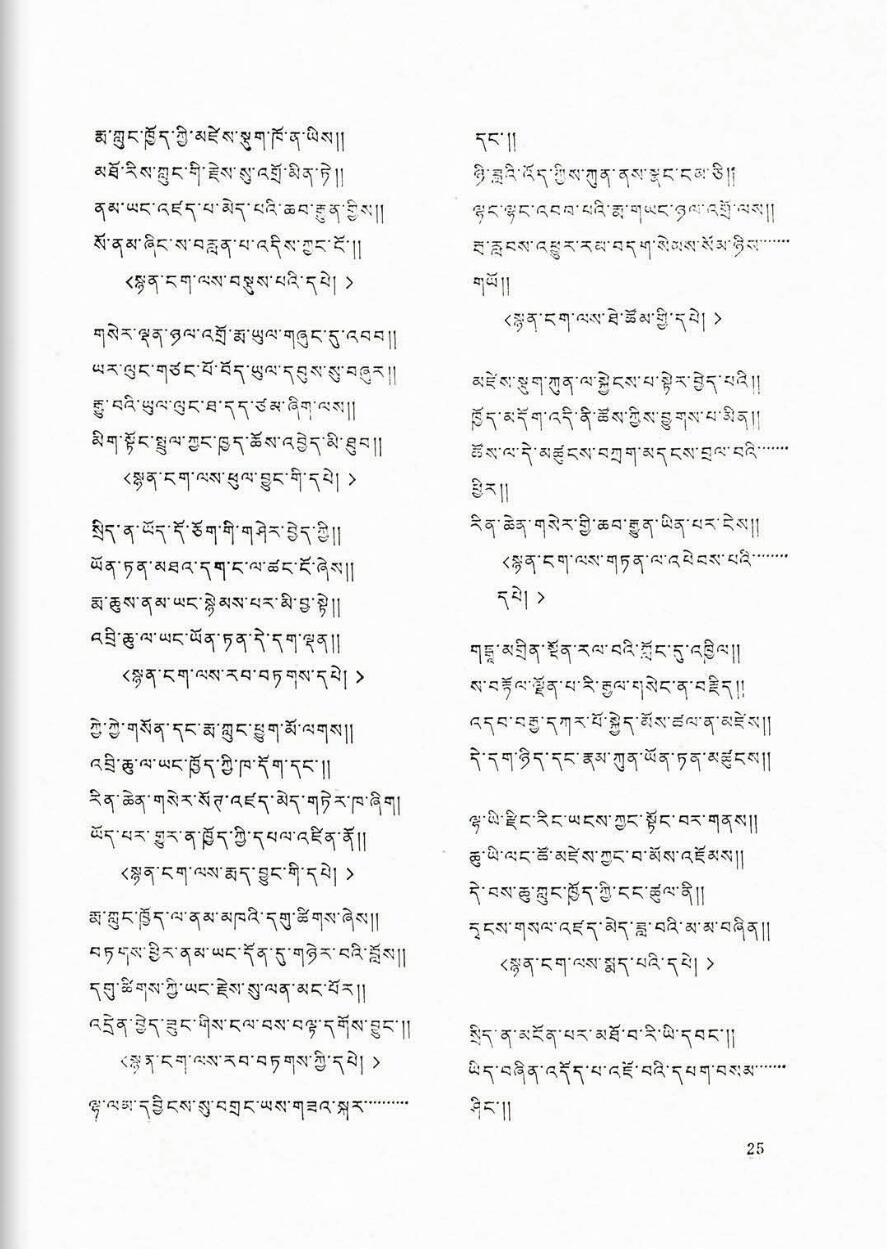 རྨ་ཀླུང་ཁྱོད་ཀྱི་མཛེས་སྡུག་ཁོ་ན་ཡིས།།
མཐོ་རིས་ཀླུང་གི་རྗེས་སུ་འགྲོ་མིན་ཏེ།།
ནམ་ཡང་འཛད་པ་མེད་པའི་ཆབ་རྒྱུན་གྱིས།།
སོ་ནམ་ཞིང་ས་བརླན་པ་འདིས་ཀྱང་ངོ་།།
<སྙན་ངག་ལས་བསྡུས་པའི་དཔེ།>
གསེར་ལྡན་ཉལ་འགྲོ་རྨ་ཡུལ་གཞུང་དུ་འབབ།།
ཡར་ལུང་གཙང་པོ་བོད་ཡུལ་དབུས་སུ་བཞུར།།
རྒྱུ་བའི་ཡུལ་ལུང་ཐ་དད་ཙམ་ཞིག་ལས།།
མིག་སྟོང་སྤྲུལ་ཀྱང་ཁྱད་ཆོས་འབྱེད་མི་ཐུབ།།
<སྙན་ངག་ལས་ཕུལ་བྱུང་གི་དཔེ།>
སྲིད་ན་ཡོད་དོ་ཅོག་གི་གཤེར་བྱེད་ཀྱི།།
ཡོན་ཏན་མཐའ་དག་ང་ལ་ཚང་ངོ་ཞེས།།
རྨ་ཆུས་ནམ་ཡང་སྙེམས་པར་མི་བྱ་སྟེ།།
འབྲི་ཆུ་ལ་ཡང་ཡོན་ཏན་དེ་དག་ལྡན།།
<སྙན་ངག་ལས་རབ་བཏགས་དཔེ།>
ཀྱེ་ཀྱེ་གསོན་དང་རྨ་ཀླུང་ཕྱུག་མོ་ལགས།།
འབྲི་ཆུ་ལ་ཡང་ཁྱོད་ཀྱི་ཁ་དོག་དང་།།
རིན་ཆེན་གསེར་སོགས་འཛད་མེད་གཏེར་ཁ་ཞིག།
ཡོད་པར་གྱུར་ན་ཁྱོད་ཀྱི་དཔལ་འཛིན་ནོ།།
<སྙན་ངག་ལས་རྨད་བྱུང་གི་དཔེ།>
རྨ་ཀླུང་ཁྱོད་ལ་ནམ་མཁའི་དགུ་ཚིགས་ཞེས།།
བཏདས་ཕྱིར་ནམ་ཡང་དོན་དུ་གཉེར་བའི་བློས།།
དགུ་ཚིགས་ཀྱི་ཡང་རྗེས་སུ་ལན་མང་པོར།།
འདྲེན་བྱེད་ཟུང་གིས་ངལ་བས་བལྟ་དགོས་བྱུང་།།
<སྙན་ངག་ལས་རབ་བཏགས་ཀྱི་དཔེ།>
ལྷ་ལམ་དབྱིངས་སུ་བགྲང་ཡས་གཟའ་སྐར………
དང་།།
ཉི་ཟླའི་འོད་ཀྱིས་ཀུན་ནས་སྣང་ངམ་ཅི།།
ལྷང་ལྷང་འབབ་པའི་རྨ་གཡང་ཉལ་འགྲོ་ལས།།
ཟླ་རླབས་འཕྱུར་རམ་བདག་སེམས་སོམ་ཉིས……
གཡོ།།
<སྙན་ངག་ལས་ཐེ་ཚོམ་གྱི་དཔེ།>
མཛེས་སྡུག་ཀུན་ལ་སྐྱེངས་པ་སྟེར་བྱེད་པའི།།
ཁྱོད་མདོག་འདི་ནི་ཚོས་ཀྱིས་བྱུགས་པ་མིན།།
ཚོས་ལ་དེ་མཚུངས་བཀྲག་མདངས་བྲལ་བའི……
ཕྱིར།།
རིན་ཆེན་གསེར་གྱི་ཆབ་རྒྱུན་ཡིན་པར་ངེས།།
<སྙན་ངག་ལས་གཏན་ལ་འཕེབས་པའི……
དཔེ།>
གངྒཱ་མགྲིན་སྔོན་རལ་བའི་ཀློང་དུ་འཁྱིལ།།
ས་བརྟོལ་ལྗོན་པ་རི་རྒྱལ་གསེང་ན་བརྗིད།།
འདབ་བརྒྱ་དཀར་པོ་སྐྱེད་མོས་ཚལ་ན་མཛེས།།
དེ་དག་ཉིད་དང་རྣམ་ཀུན་ཡོན་ཏན་མཚུངས།།
ལྷ་ཡི་རྫིང་རིང་ཡངས་ཀྱང་སྟོང་བར་གནས།།
ཆུ་ཡི་ལང་ཚོ་མཛེས་ཀྱང་བ་མོས་འཇོམས།།
དེ་བས་ཆུ་ཀླུང་ཁྱོད་ཀྱི་ངང་ཚུལ་ནི།།
དྭངས་གསལ་འཛད་མེད་ཟླ་བའི་མ་མ་བཞིན།།
<སྙན་ངག་ལས་སྨད་པའི་དཔེ།>
སྲིད་ན་མངོན་པར་མཐོ་བ་རི་ཡི་དབང་།།
ཡིད་བཞིན་འདོད་པ་འཇོ་བའི་དཔག་བསམ……
ཤིང་།།
25